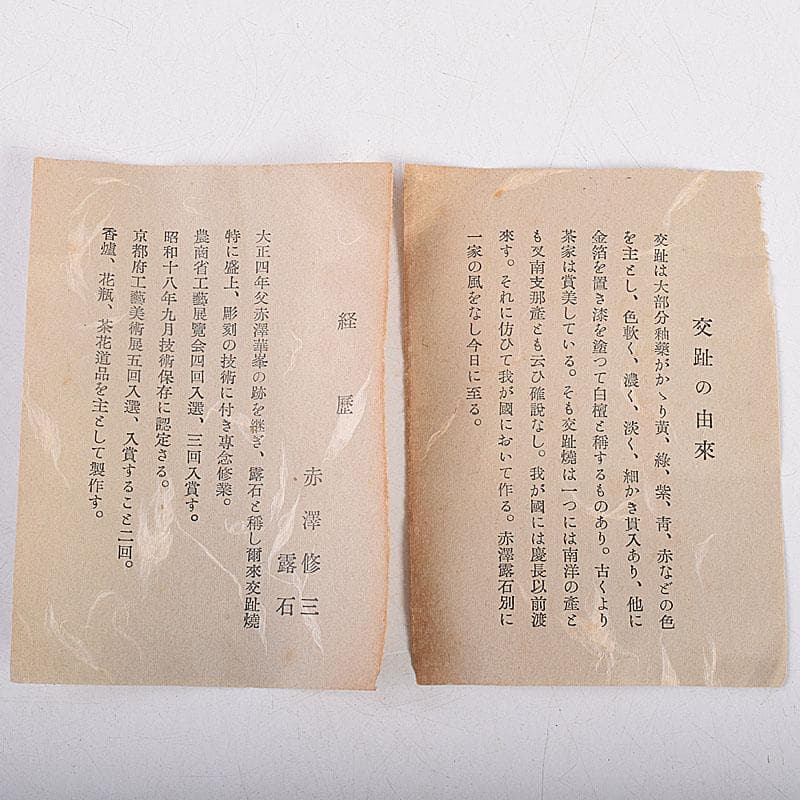 交趾の由來
交趾は大部分釉藥がかゝり黃、綠、紫、靑、赤などの色
を主とし、色軟く、濃く、淡く、細かき貫入あり、他に
金箔を置き漆を塗つて白檀と稱するものあり。古くより
茶家は賞美している。そも交趾燒は一つには南洋の產と
も又南支那產とも云ひ確說なし。我が國には慶長以前渡
來す。それに仿ひて我が國において作る。赤澤露石別に
一家の風をなし今日に至る。
経歴
赤澤修三
露石
大正四年父赤澤華峯の跡を継ぎ、露石と稱し爾來交趾燒
特に盛上、彫刻の技術に付き專念修業。
農商省工藝展覽会四回入選、三回入賞す。
昭和十八年九月技術保存に認定さる。
京都府工藝美術展五回入選、入賞すること二回。
香爐、花瓶、茶花道品を主として製作す。